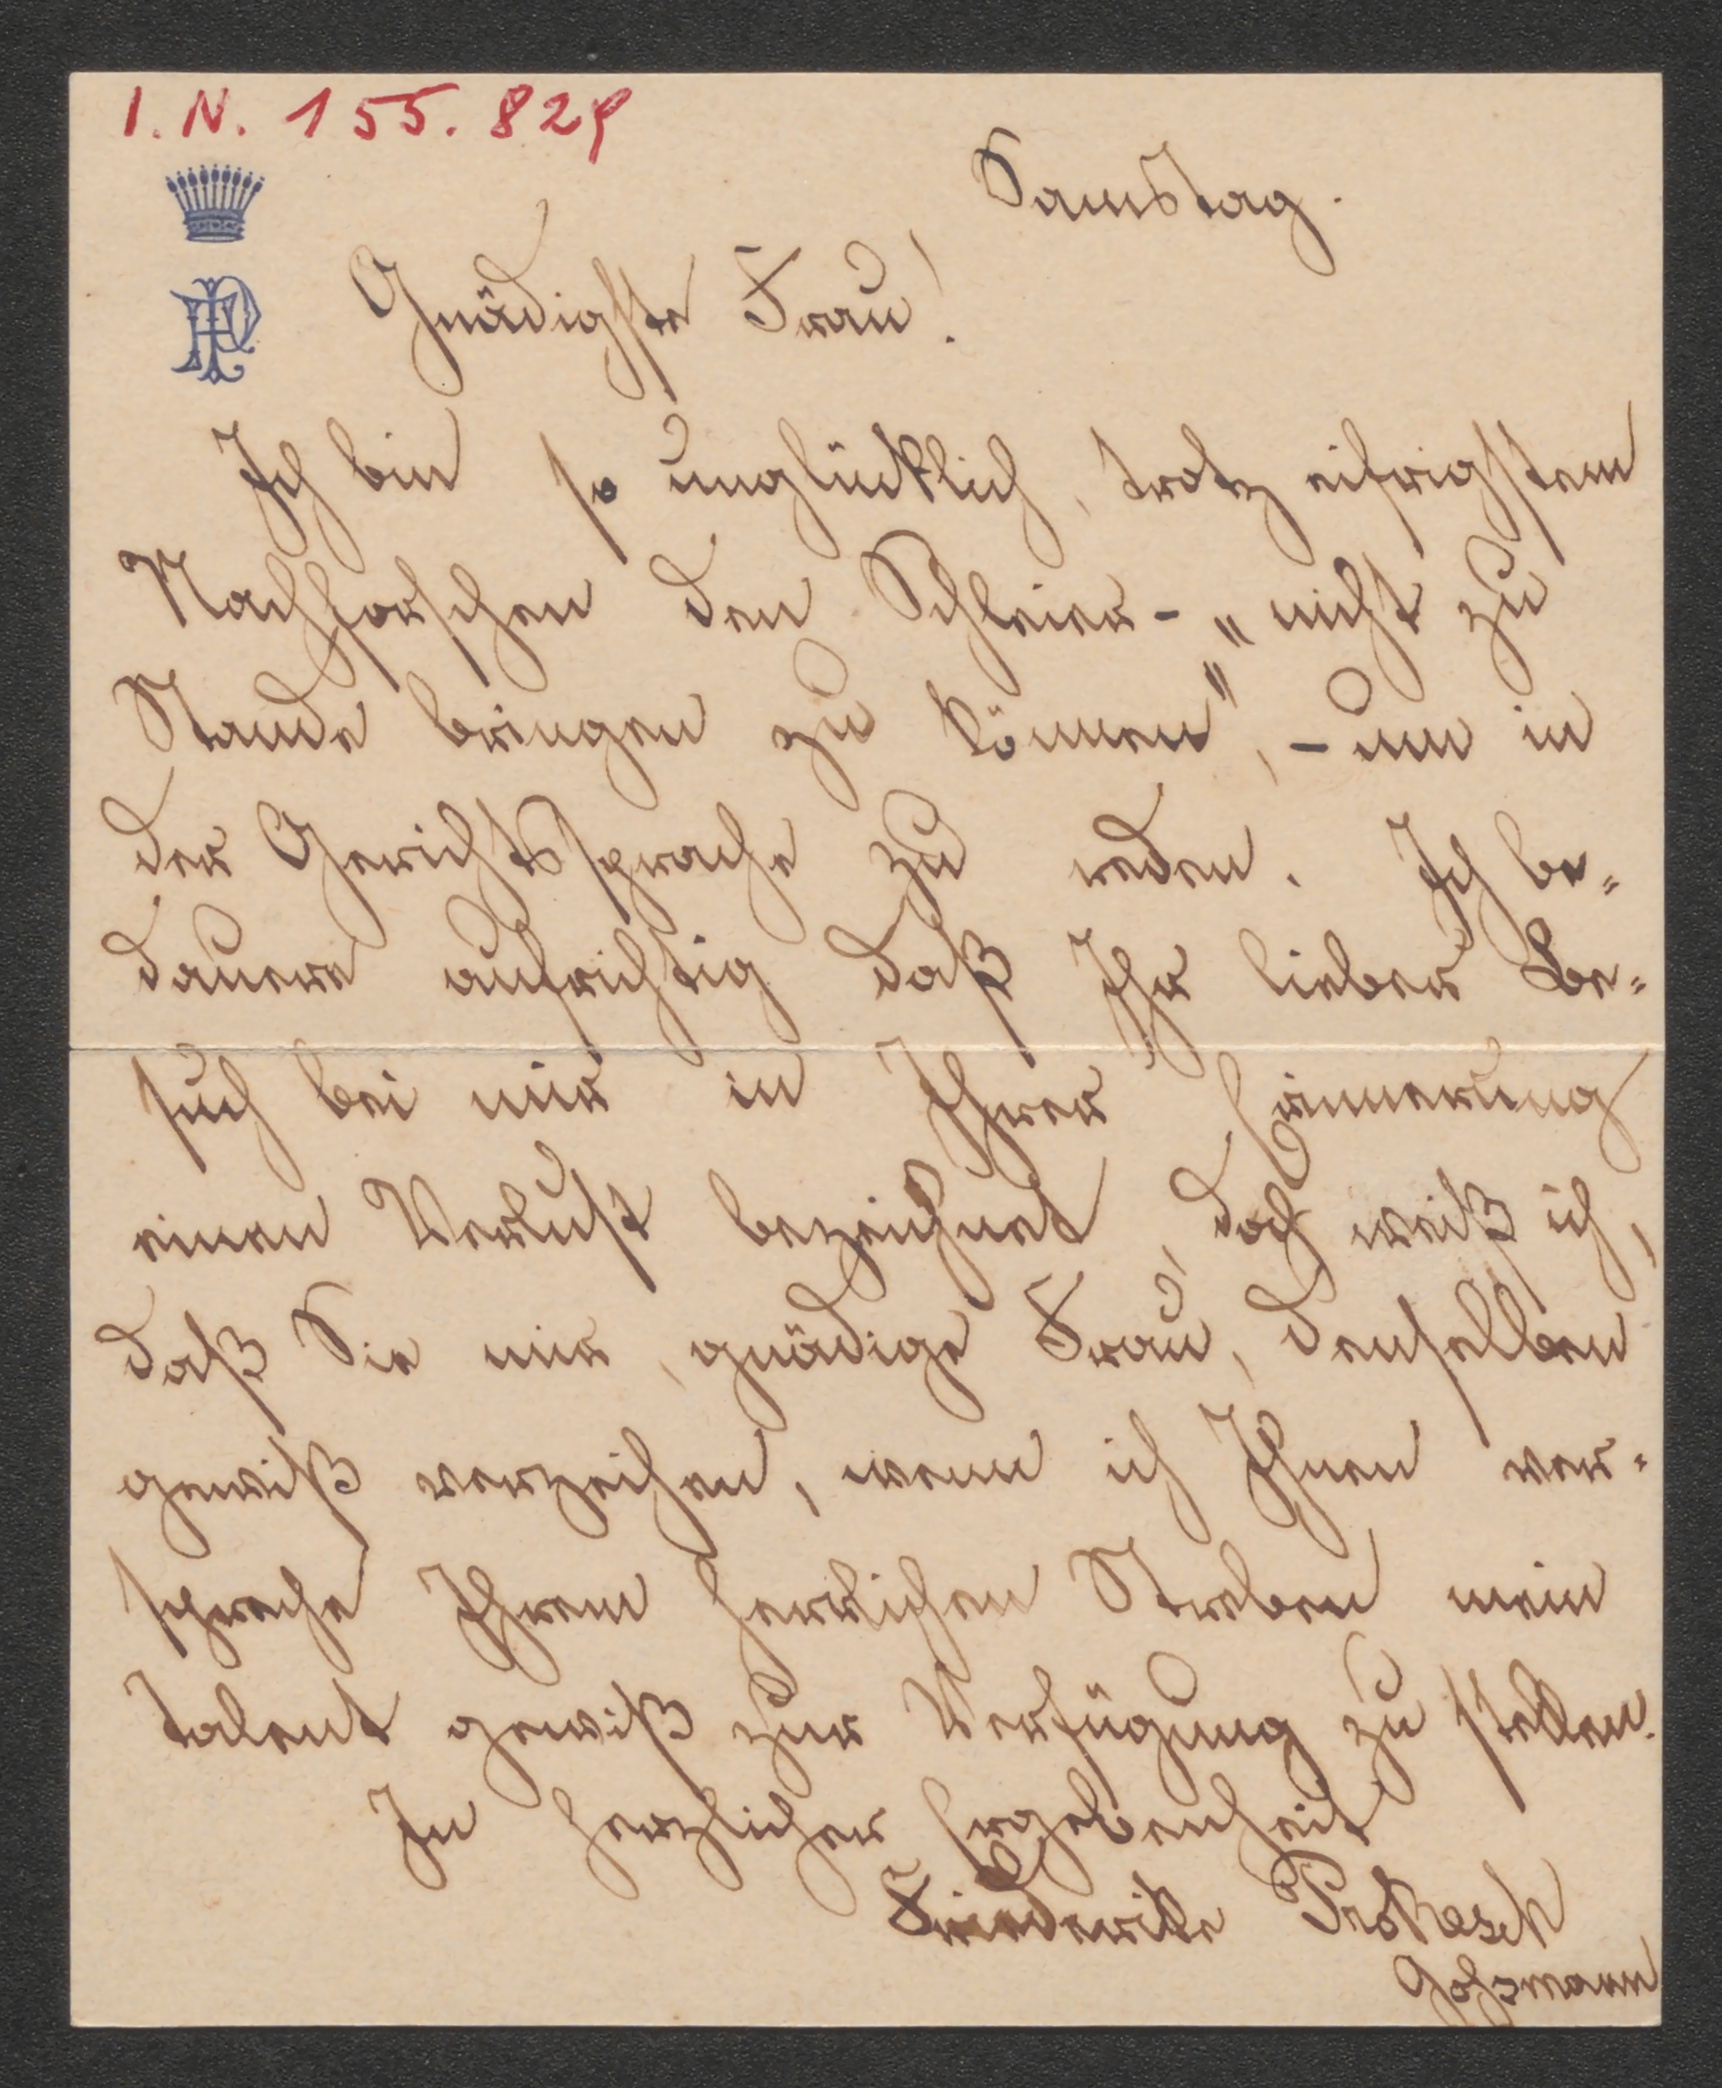 I.N. 155.829
Samstag.
FP
Gnädigste Frau!
Ich bin so unglücklich, trotz eifrigstem
Nachforschen den Schleier - „nicht zu
Stande bringen zu können", - um in
der Gerichtssprache zu reden. Ich be=
dauere aufrichtig daß Ihr lieber Be=
such bei mir in Ihrer Erinnerung
einen Verlust bezeichnet, doch weiß ich,
daß Sie mir, gnädige Frau, denselben
gewiß verzeihen, wenn ich Ihnen ver=
spreche Ihrem herrlichen Streben mein
Talent gewiß zur Verfügung zu stellen.
In herzlicher Ergebenheit
Friederike Prokesch
Goßmann